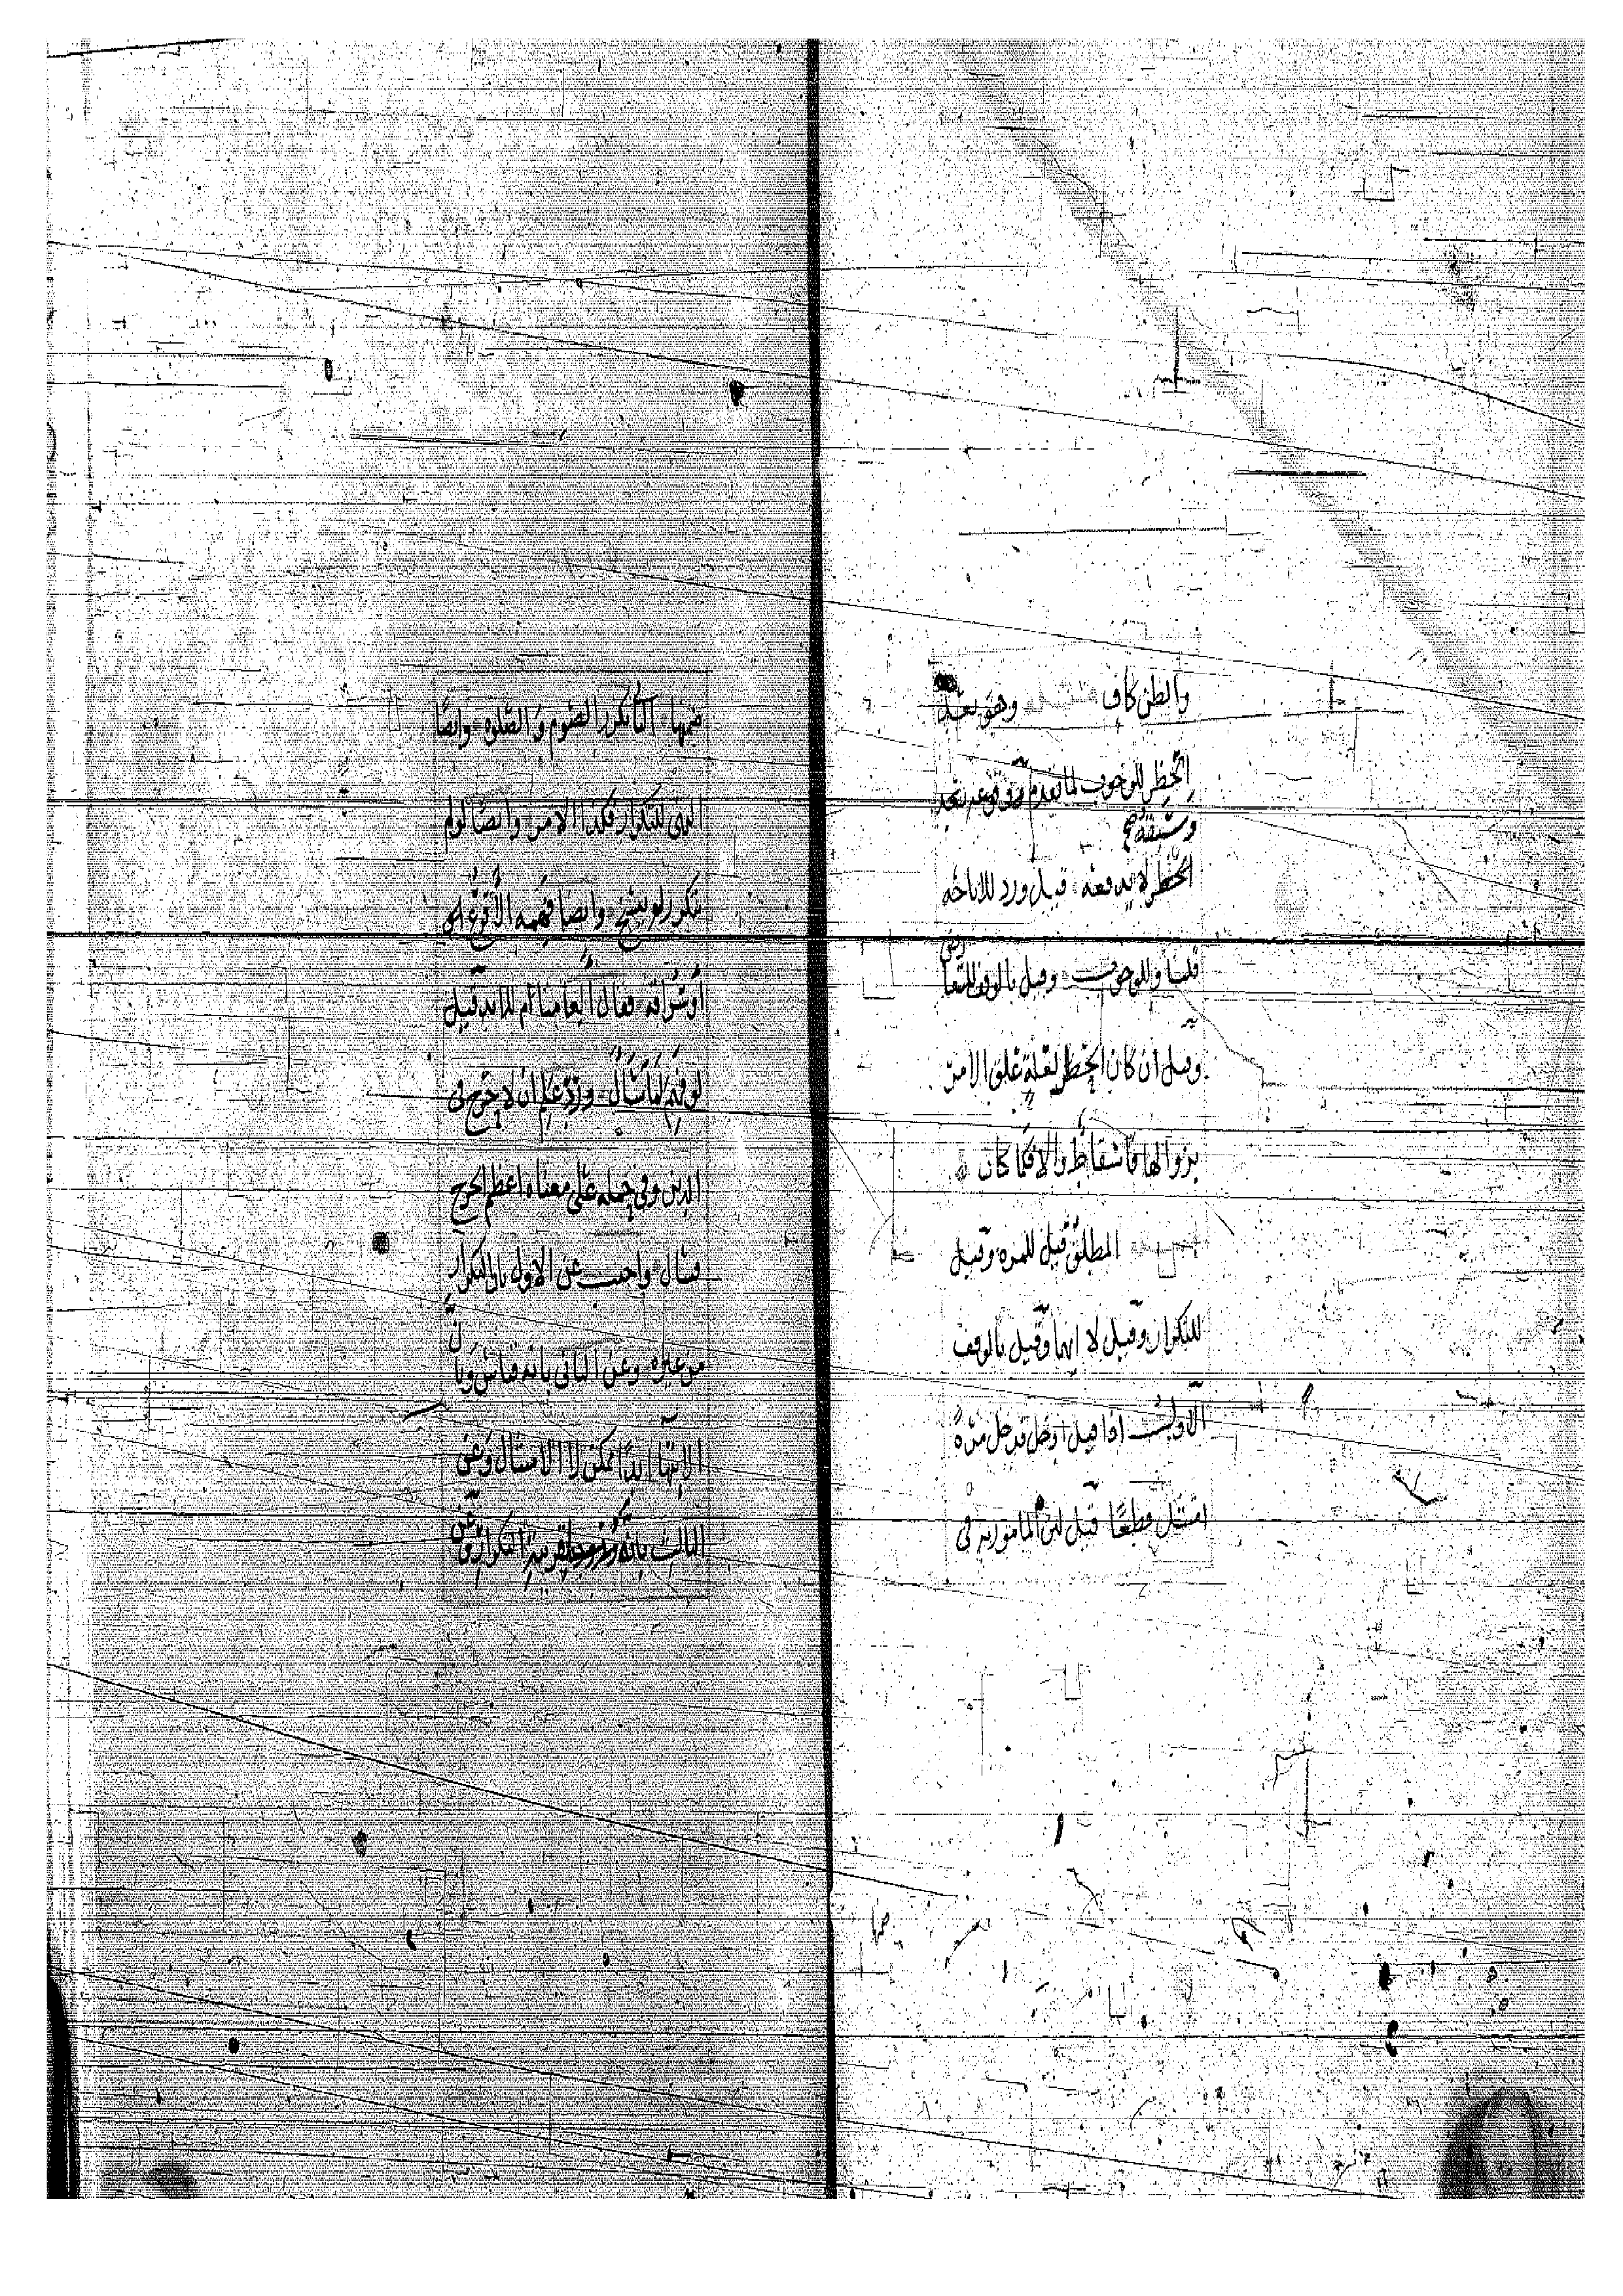 والظن كاف وهو بعد
الحظر للوجوب لما تقدم
وسبقه صح
الحظر لا يدفعه قيل ورد للاباحه
قلنا وللوجوب وقيل بالوقف للتعا
رض
وقيل ان كان الحظر لعلة علق الامر
بزوالها فاسقاط والا فكما كان
المطلق قيل للمره وقيل
للتكرار وقيل لا ايهما وقيل بالوقف
الاول اذا قيل ادخل فدخل مرة
امتثل قطعا قيل لان المامور به في
ضمنها الثاني تكرر الصوم والصلوه وايضا
النهي للتكرار فكذا الامر وايضا لو لم
تكرر لم ينسخ وايضا فهمه الاقرع ابن
او سراقه فقال ألعامنا ام للابد قيل
لو فهم لما سأل ورد علم ان لا حرج في
الدين وفي حمله على معناه اعظم الحرج
فسال واجيب عن الاول بان التكرار
من غيره وعن الثاني بانه قياس وبا
ن
الانتها ابدا ممكن لا الامتثال وعن
الثالث بانه بقرينة التكرار وعن